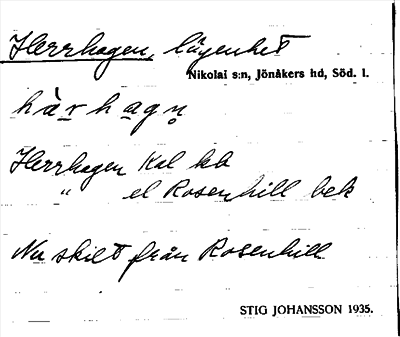 Herrhagen, lägenhet
Nikolai s:n, Jönåkers hd, Söd. l.
hàrhagn̥
Herrhagen Kal kb
" el Rosenhill bek
Nu skilt från Rosenhill
STIG JOHANSSON 1935.